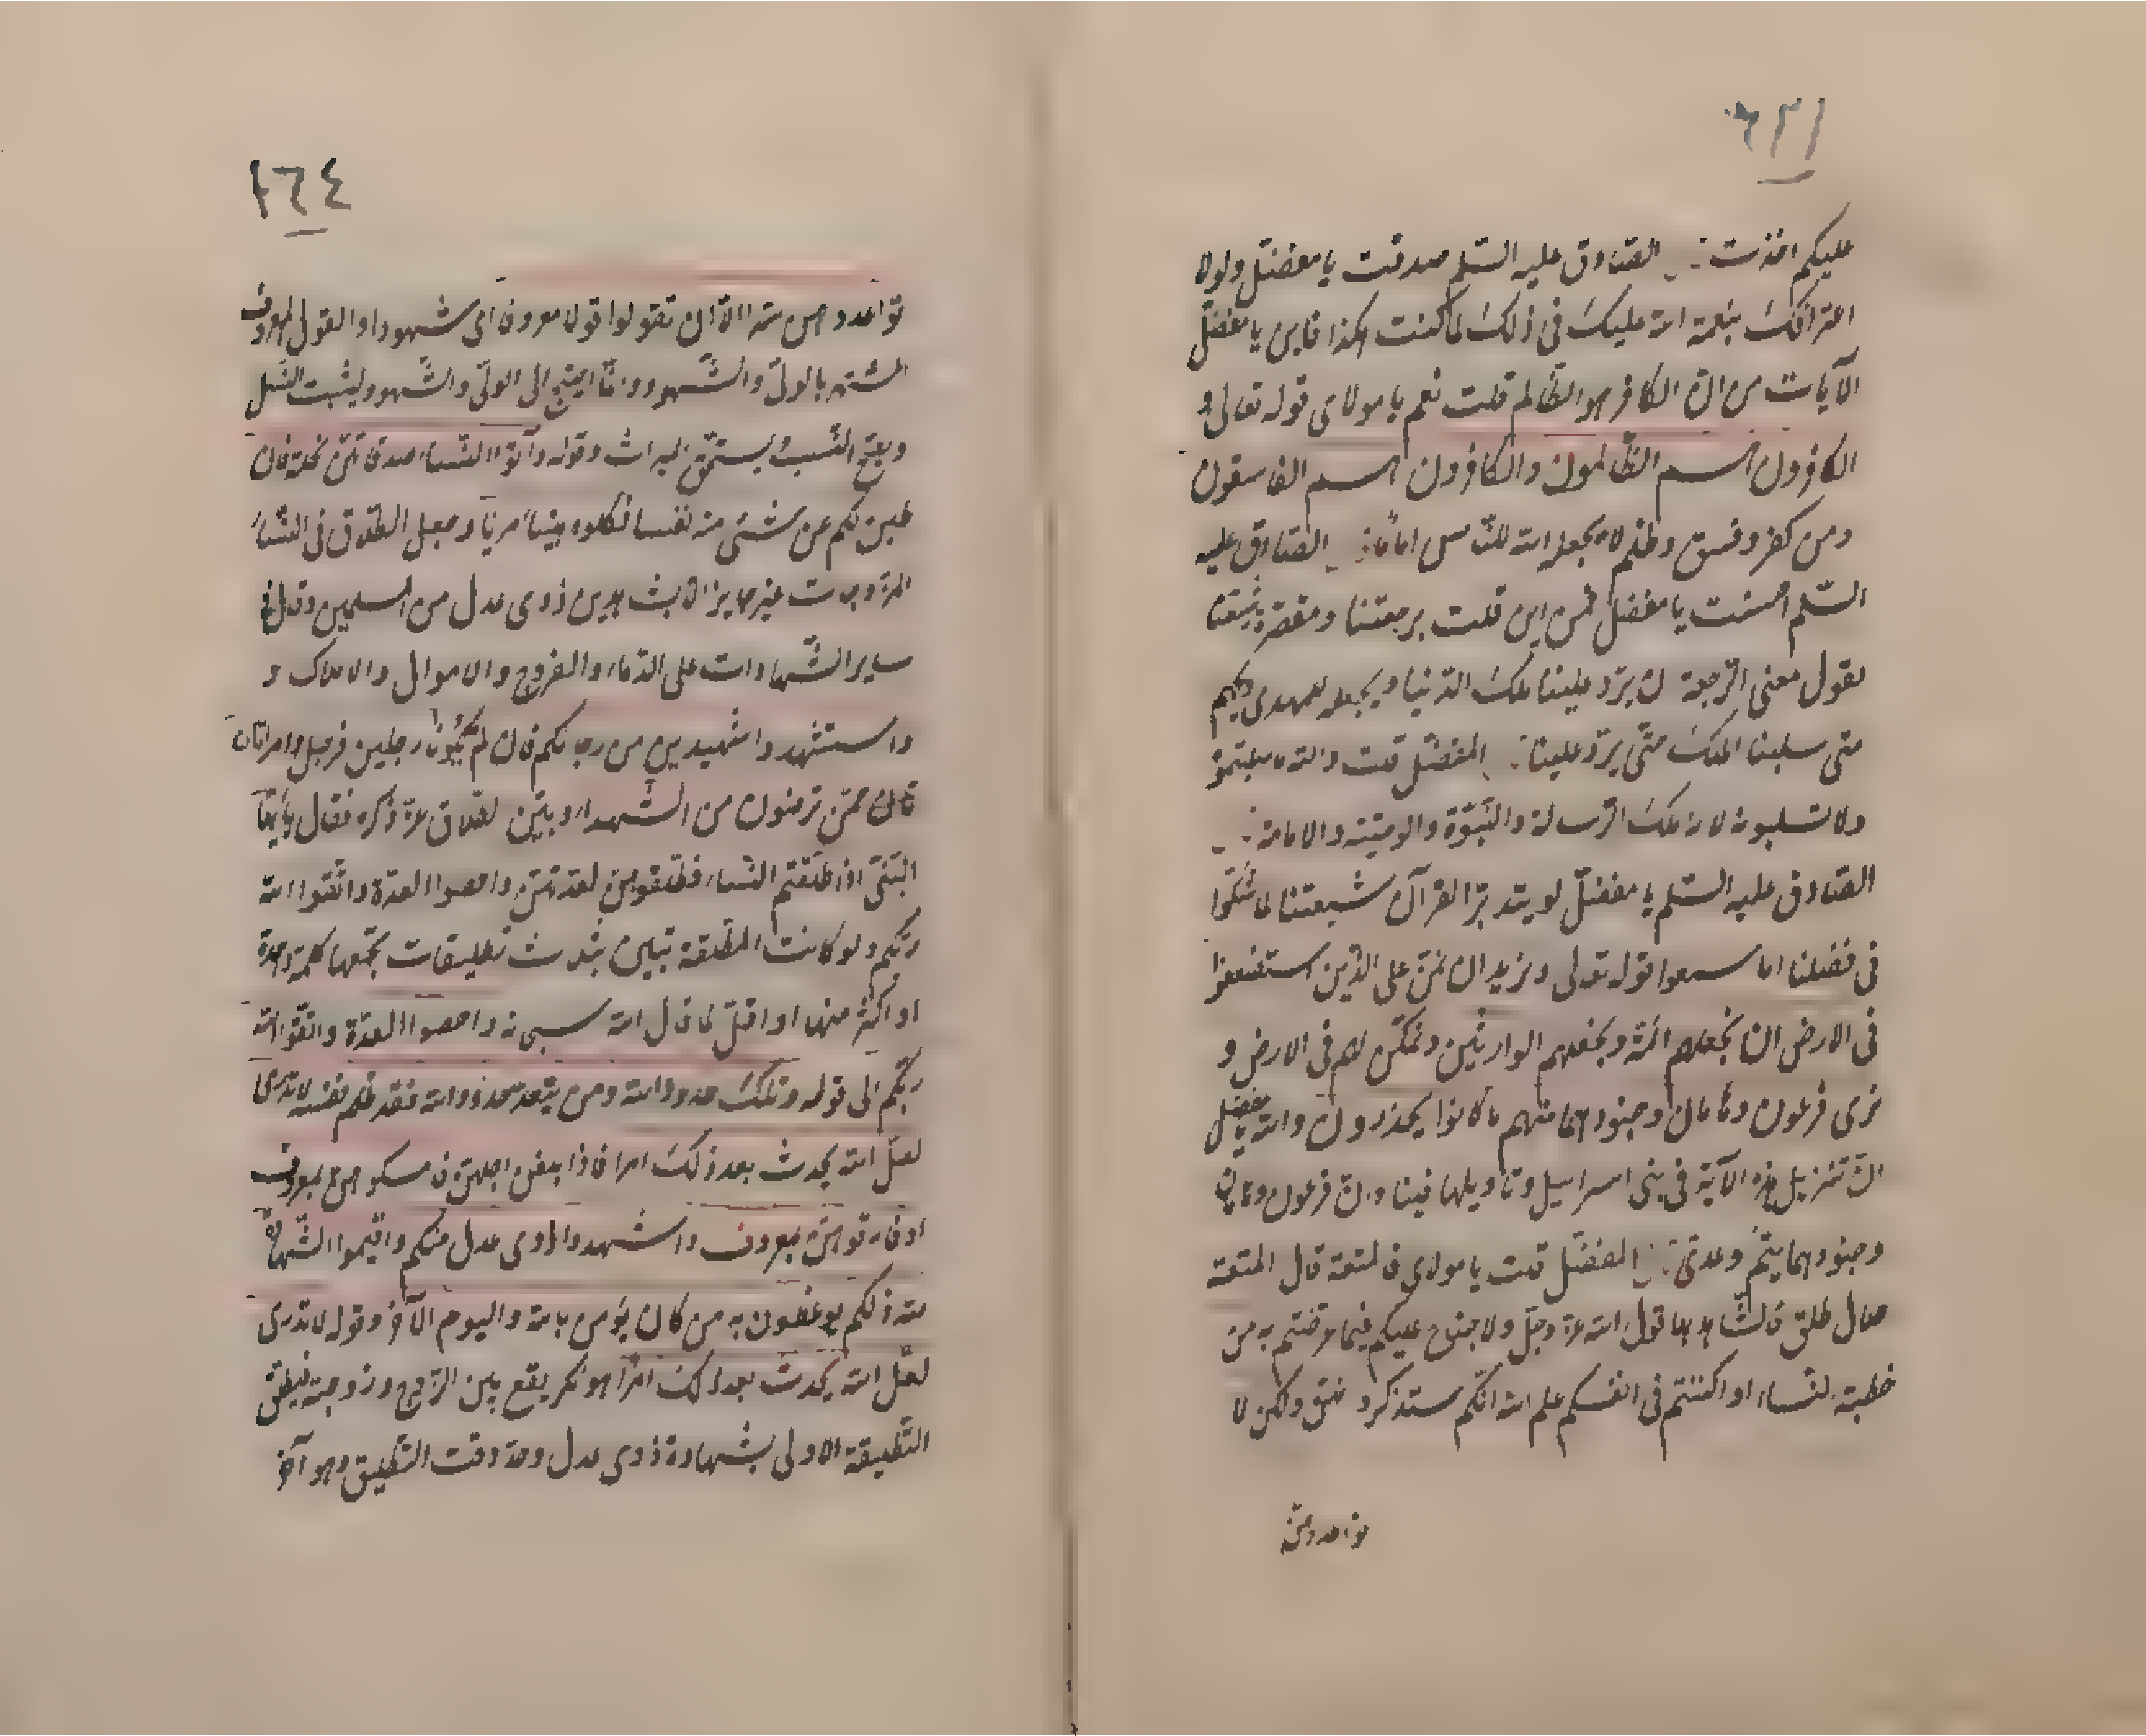 عليكم اخذت الصّادق عليه السّلم صدقت يا مفضّل ولولا
اعترافكَ بنعمة الله عليكَ فى ذلكَ لما كنت هكذا فاين يا مفضّل
الآيات من انّ الكافر هو الظّالم قلت نعم يا مولاى قوله تعالى و
الكافرون هم الظّالمون والكافرون هم الفاسقون
ومن كفر وفسق وظلم لا يجعله الله للنّاس اماماً الصّادق عليه
السّلم احسنت يا مفضّل فمن اين قلت برجعتنا ومقصّرة شيعتنا
تقول معنى الرّجعة ان يردّ علينا ملكَ الدّنيا ويجعله للمهدى ويحهم
متى سلبنا الملكَ حتّى يردّ علينا المفضّل قلت والله ما سلبتموه
ولا تسلبونه لانه ملكَ الرّسالة والنّبوّة والوصيّة والامامة
الصّادق عليه السّلم يا مفضّل لو يتدبّر القرآن شيعتنا لما شكّوا
فى فضلنا اما سمعوا قوله تعالى ونريد ان نمنّ على الّذين استضعفوا
فى الارض ان نجعلهم ائمة ونجعلهم الوارثين ونمكّن لهم فى الارض و
نرى فرعون وهامان وجنودهما منهم ما كانوا يحذرون والله يا مفضل
انّ تنزيل هذه الآية فى بنى اسرائيل وتاويلها فينا وانّ فرعون وهامان
وجنودهما تيم وعدىّ المفضّل قلت يا مولاى فالمتعة قال المتعة
حلال طلق فالشّاهد بها قول الله عزّ وجلّ ولا جناح عليكم فيما عرّضتم به من
خطبة النّساء او اكننتم فى انفسكم علم الله انّكم ستذكرونهنّ ولكن لا
تواعدوهنّ
١٦٤
تواعدوهن سرّا الاّ ان تقولوا قولا معروفا اى شهودا والقول المعروف
المشتهر بالولىّ والشّهود وانّما احتيج الى الولىّ والشّهود ليثبت النّسل
ويصحّ النّسب ويستحقّ الميراث وقوله وآتوا النّساء صدقاتهنّ نحلة فان
طبن لكم عن شىء منه نفسا فكلوه هنيئاً مريئا وجعل الطّلاق فى النّساء
المزوّجات غير جايز الاّ بشاهدين ذوى عدل من المسلمين وقال فى
ساير الشّهادات على الدّماء والفروج والاموال والاملاك و
واستشهدوا شهيدين من رجالكم فان لم يكونا رجلين فرجل وامراتان
ممّن ترضون من الشّهداء وبيّن الطّلاق عزّ ذكره فقال يا ايّها
النّبىّ اذا طلّقتم النّساء فطلّقوهنّ لعدّتهنّ واحصوا العدّة واتّقوا الله
ربّكم ولو كانت المطلّقة تبين بثلاث تطليقات تجمعها كلمة واحدة
او اكثر منها او اقلّ لما قال الله سبحانه واحصوا العدّة واتّقوا الله
ربّكم الى قوله وتلكَ حدود الله ومن يتعدّ حدود الله فقد ظلم نفسه لا تدرى
لعلّ الله يحدث بعد ذلكَ امرا فاذا بلغن اجلهنّ فامسكوهنّ بمعروف
او فارقوهنّ بمعروف واشهدوا ذوى عدل منكم واقيموا الشّهادة
لله ذلكم يوعظون به من كان يؤمن بالله واليوم الآخر وقوله لا تدرى
لعلّ الله يحدث بعد ذلك امراً هو نكر يقع بين الزّوج وزوجته فيطلق
التّطليقة الاولى بشهادة ذوى عدل وحدّ وقت التّطليق وهو آخر